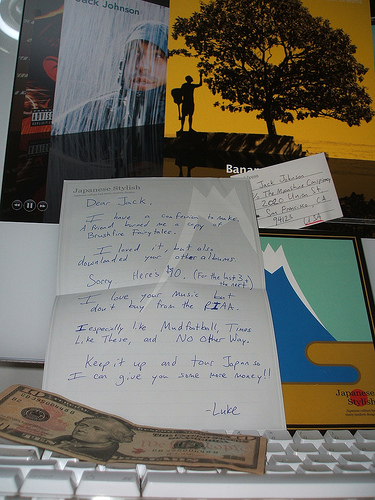 Jack Johnson
Banana
Jack Johnson
The Moonshine Conspiracy
2020 Union St.
San Francisco, CA
94123 USA
Japanese Stylish
Dear Jack,
I have a confession to make.
A friend burned me a copy of
Brushfire Fairytales.
I loved it, but also
downloaded your other albums.
Sorry. Here's $10. (For the last 3 +
the next)
I love your music but
don't buy from the RIAA.
I especially like Mudfootball, Times
Like These, and No Other Way.
Keep it up and tour Japan so
I can give you some more money!!
-Luke
Japanese
Stylish